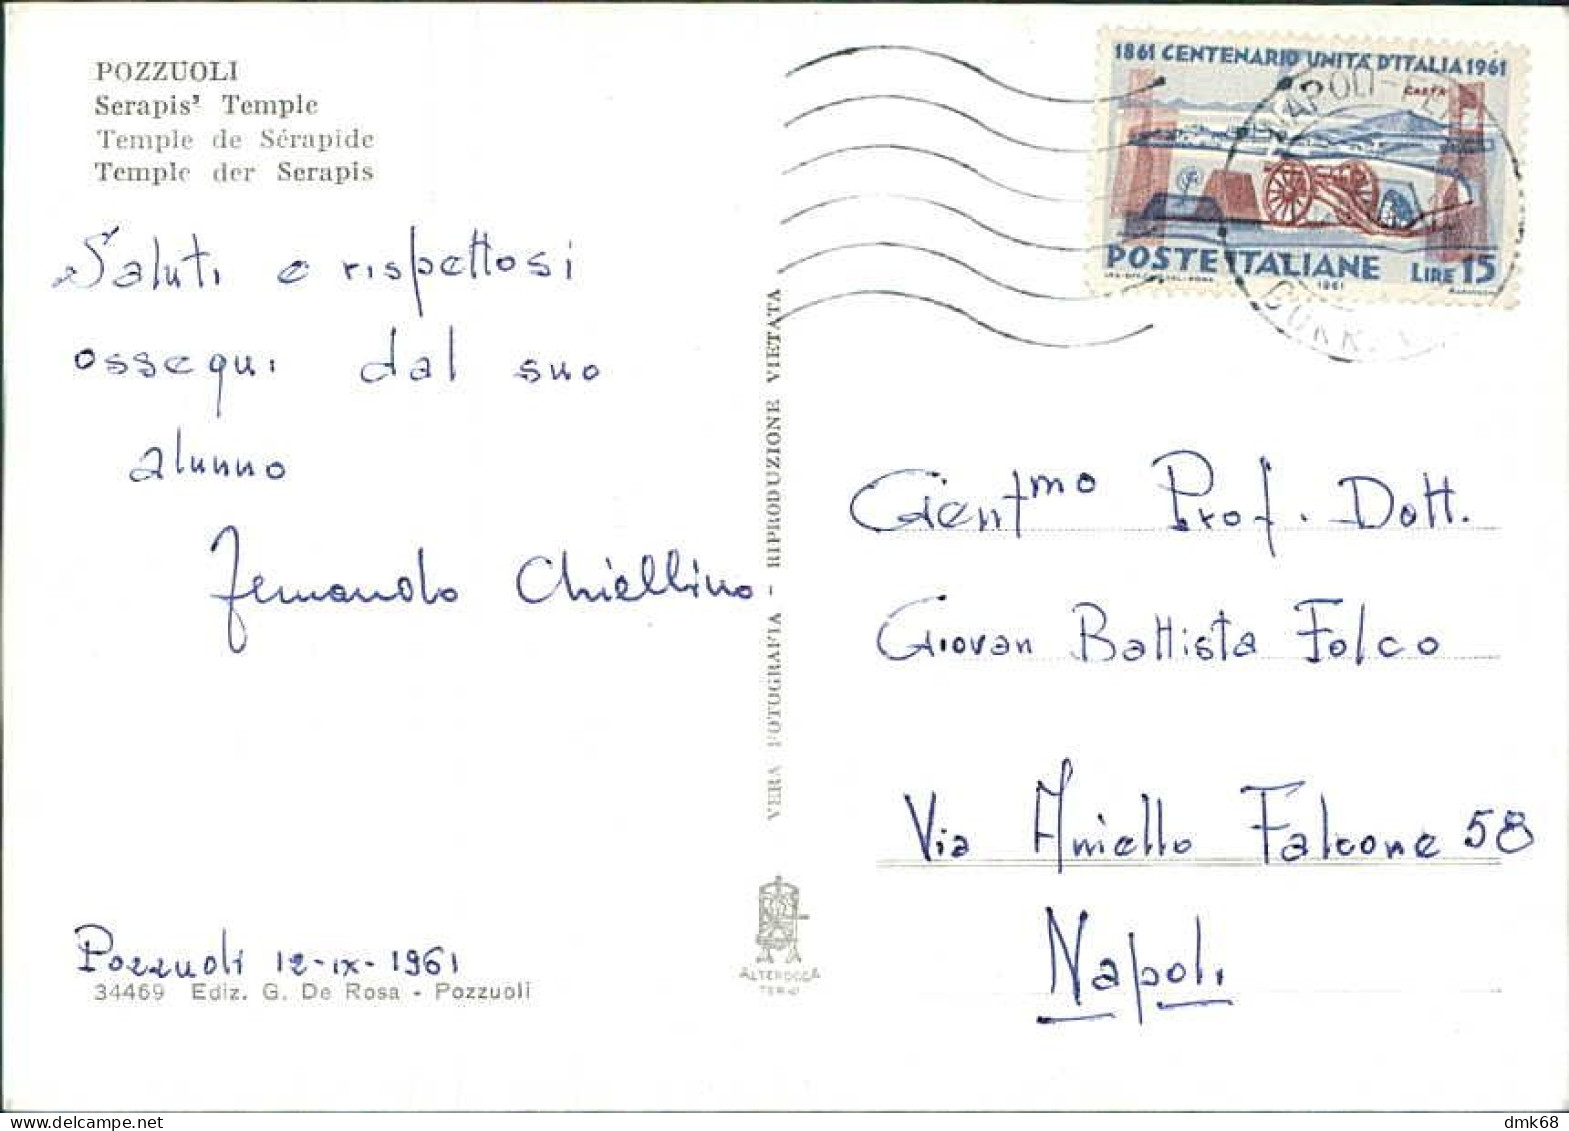 POZZUOLI
Serapis' Temple
Temple de Sérapide
Temple der Serapis
Saluti e rispettosi
ossequi dal suo
alunno
Fernando Chiellino
Pozzuoli 12-IX-1961
34469 Ediz. G. De Rosa - Pozzuoli
VERA FOTOGRAFIA - RIPRODUZIONE VIETATA
ALTEROCCA
TERNI
1861 CENTENARIO UNITÀ D'ITALIA 1961
GAETA
POSTE ITALIANE LIRE 15
1961
NAPOLI-FE
Gentmo Prof. Dott.
Giovan Battista Folco
Via Aniello Falcone 58
Napoli
dmk68
delcampe.net